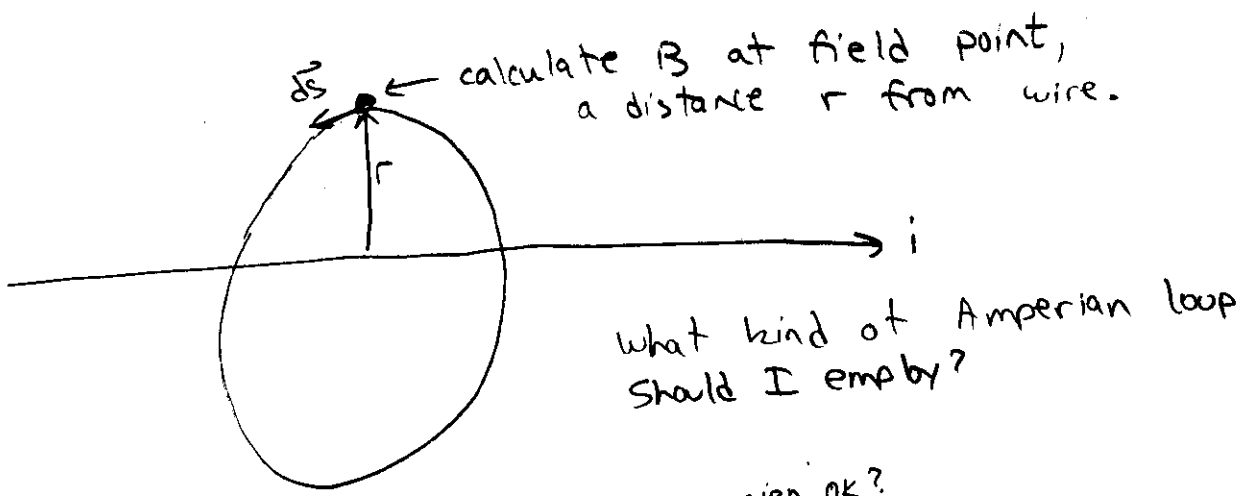 ds
calculate B at field point,
a distance r from wire.
r
i
What kind of Amperian loop
Should I employ?
ok?